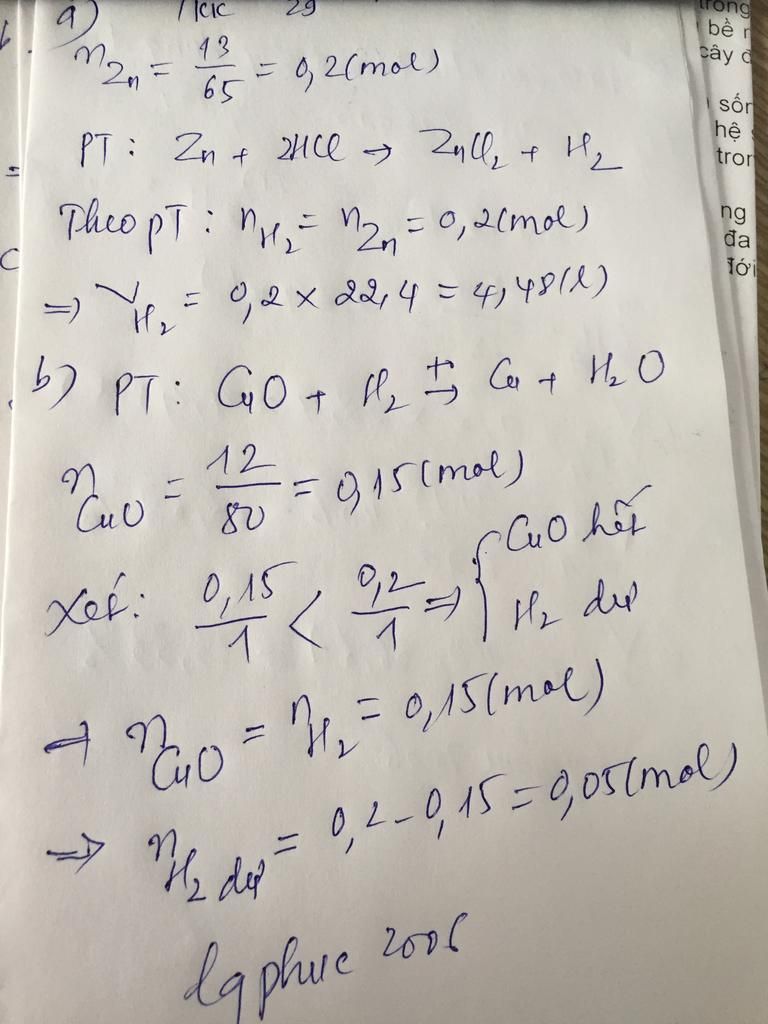 a) /KK 29
n Zn = 13/65 = 0,2(mol)
PT: Zn + 2HCl → ZnCl₂ + H₂
Theo pT: n H₂ = n Zn = 0,2(mol)
=> V H₂ = 0,2 × 22,4 = 4,48(l)
b) PT: CuO + H₂ →(t) Cu + H₂O
n CuO = 12/80 = 0,15(mol)
Xét: 0,15/1 < 0,2/1 => { CuO hết
H₂ dư
=> n CuO = n H₂ = 0,15(mol)
=> n H₂ dư = 0,2 - 0,15 = 0,05(mol)
lqphuc 2006
trong
bề r
cây đ
sốn
hệ s
tron
ng
đa
đới